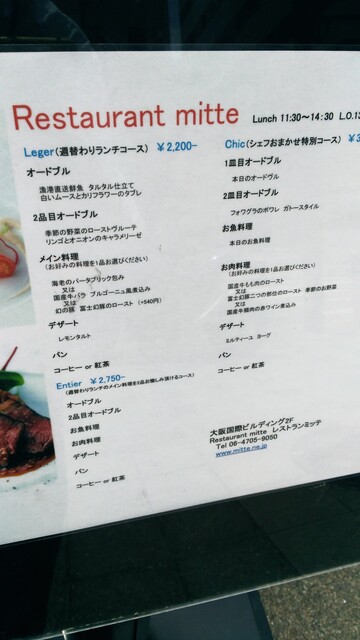 Restaurant mitte Lunch 11:30~14:30 L.O.13
Leger(週替わりランチコース) ¥2,200-
オードブル
漁港直送鮮魚 タルタル仕立て
白いムースとカリフラワーのタブレ
2品目オードブル
季節の野菜のローストヴルーテ
リンゴとオニオンのキャラメリーゼ
メイン料理
(お好みの料理を1品お選びください)
海老のパータブリック包み
又は
国産牛バラ ブルゴーニュ風煮込み
又は
幻の豚 富士幻豚のロースト (+540円)
デザート
レモンタルト
パン
コーヒー or 紅茶
Entier ¥2,750-
(週替わりランチのメイン料理を2品お愉しみ頂けるコース)
オードブル
2品目オードブル
お魚料理
お肉料理
デザート
パン
コーヒー or 紅茶
Chic(シェフおまかせ特別コース) ¥3
1皿目オードブル
本日のオードヴル
2皿目オードブル
フォワグラのポワレ ガトースタイル
お魚料理
本日のお魚料理
お肉料理
(お好みの料理を1品お選びください)
国産牛もも肉のロースト
又は
富士幻豚二つの部位のロースト 季節のお野菜
又は
国産牛頬肉の赤ワイン煮込み
デザート
ミルティーユ ヨーグ
パン
コーヒー or 紅茶
大阪国際ビルディング2F
Restaurant mitte レストランミッテ
Tel 06-4705-9050
www.mitte.ne.jp